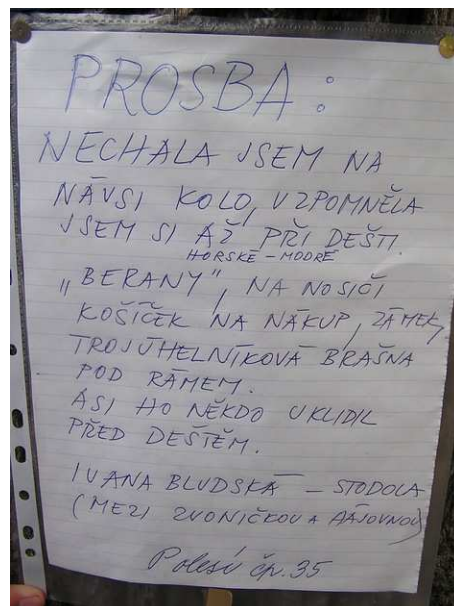 PROSBA:
NECHALA JSEM NA
NÁVSI KOLO, VZPOMNĚLA
JSEM SI AŽ PŘI DEŠTI.
HORSKÉ - MODRÉ
„BERANY", NA NOSIČI
KOŠÍČEK NA NÁKUP, ZÁMEK,
TROJÚHELNÍKOVÁ BRAŠNA
POD RÁMEM.
ASI HO NĚKDO UKLIDIL
PŘED DEŠTĚM.
IVANA BLUDSKÁ - STODOLA
(MEZI ZVONIČKOU A HÁJOVNOU)
Polesí čp. 35